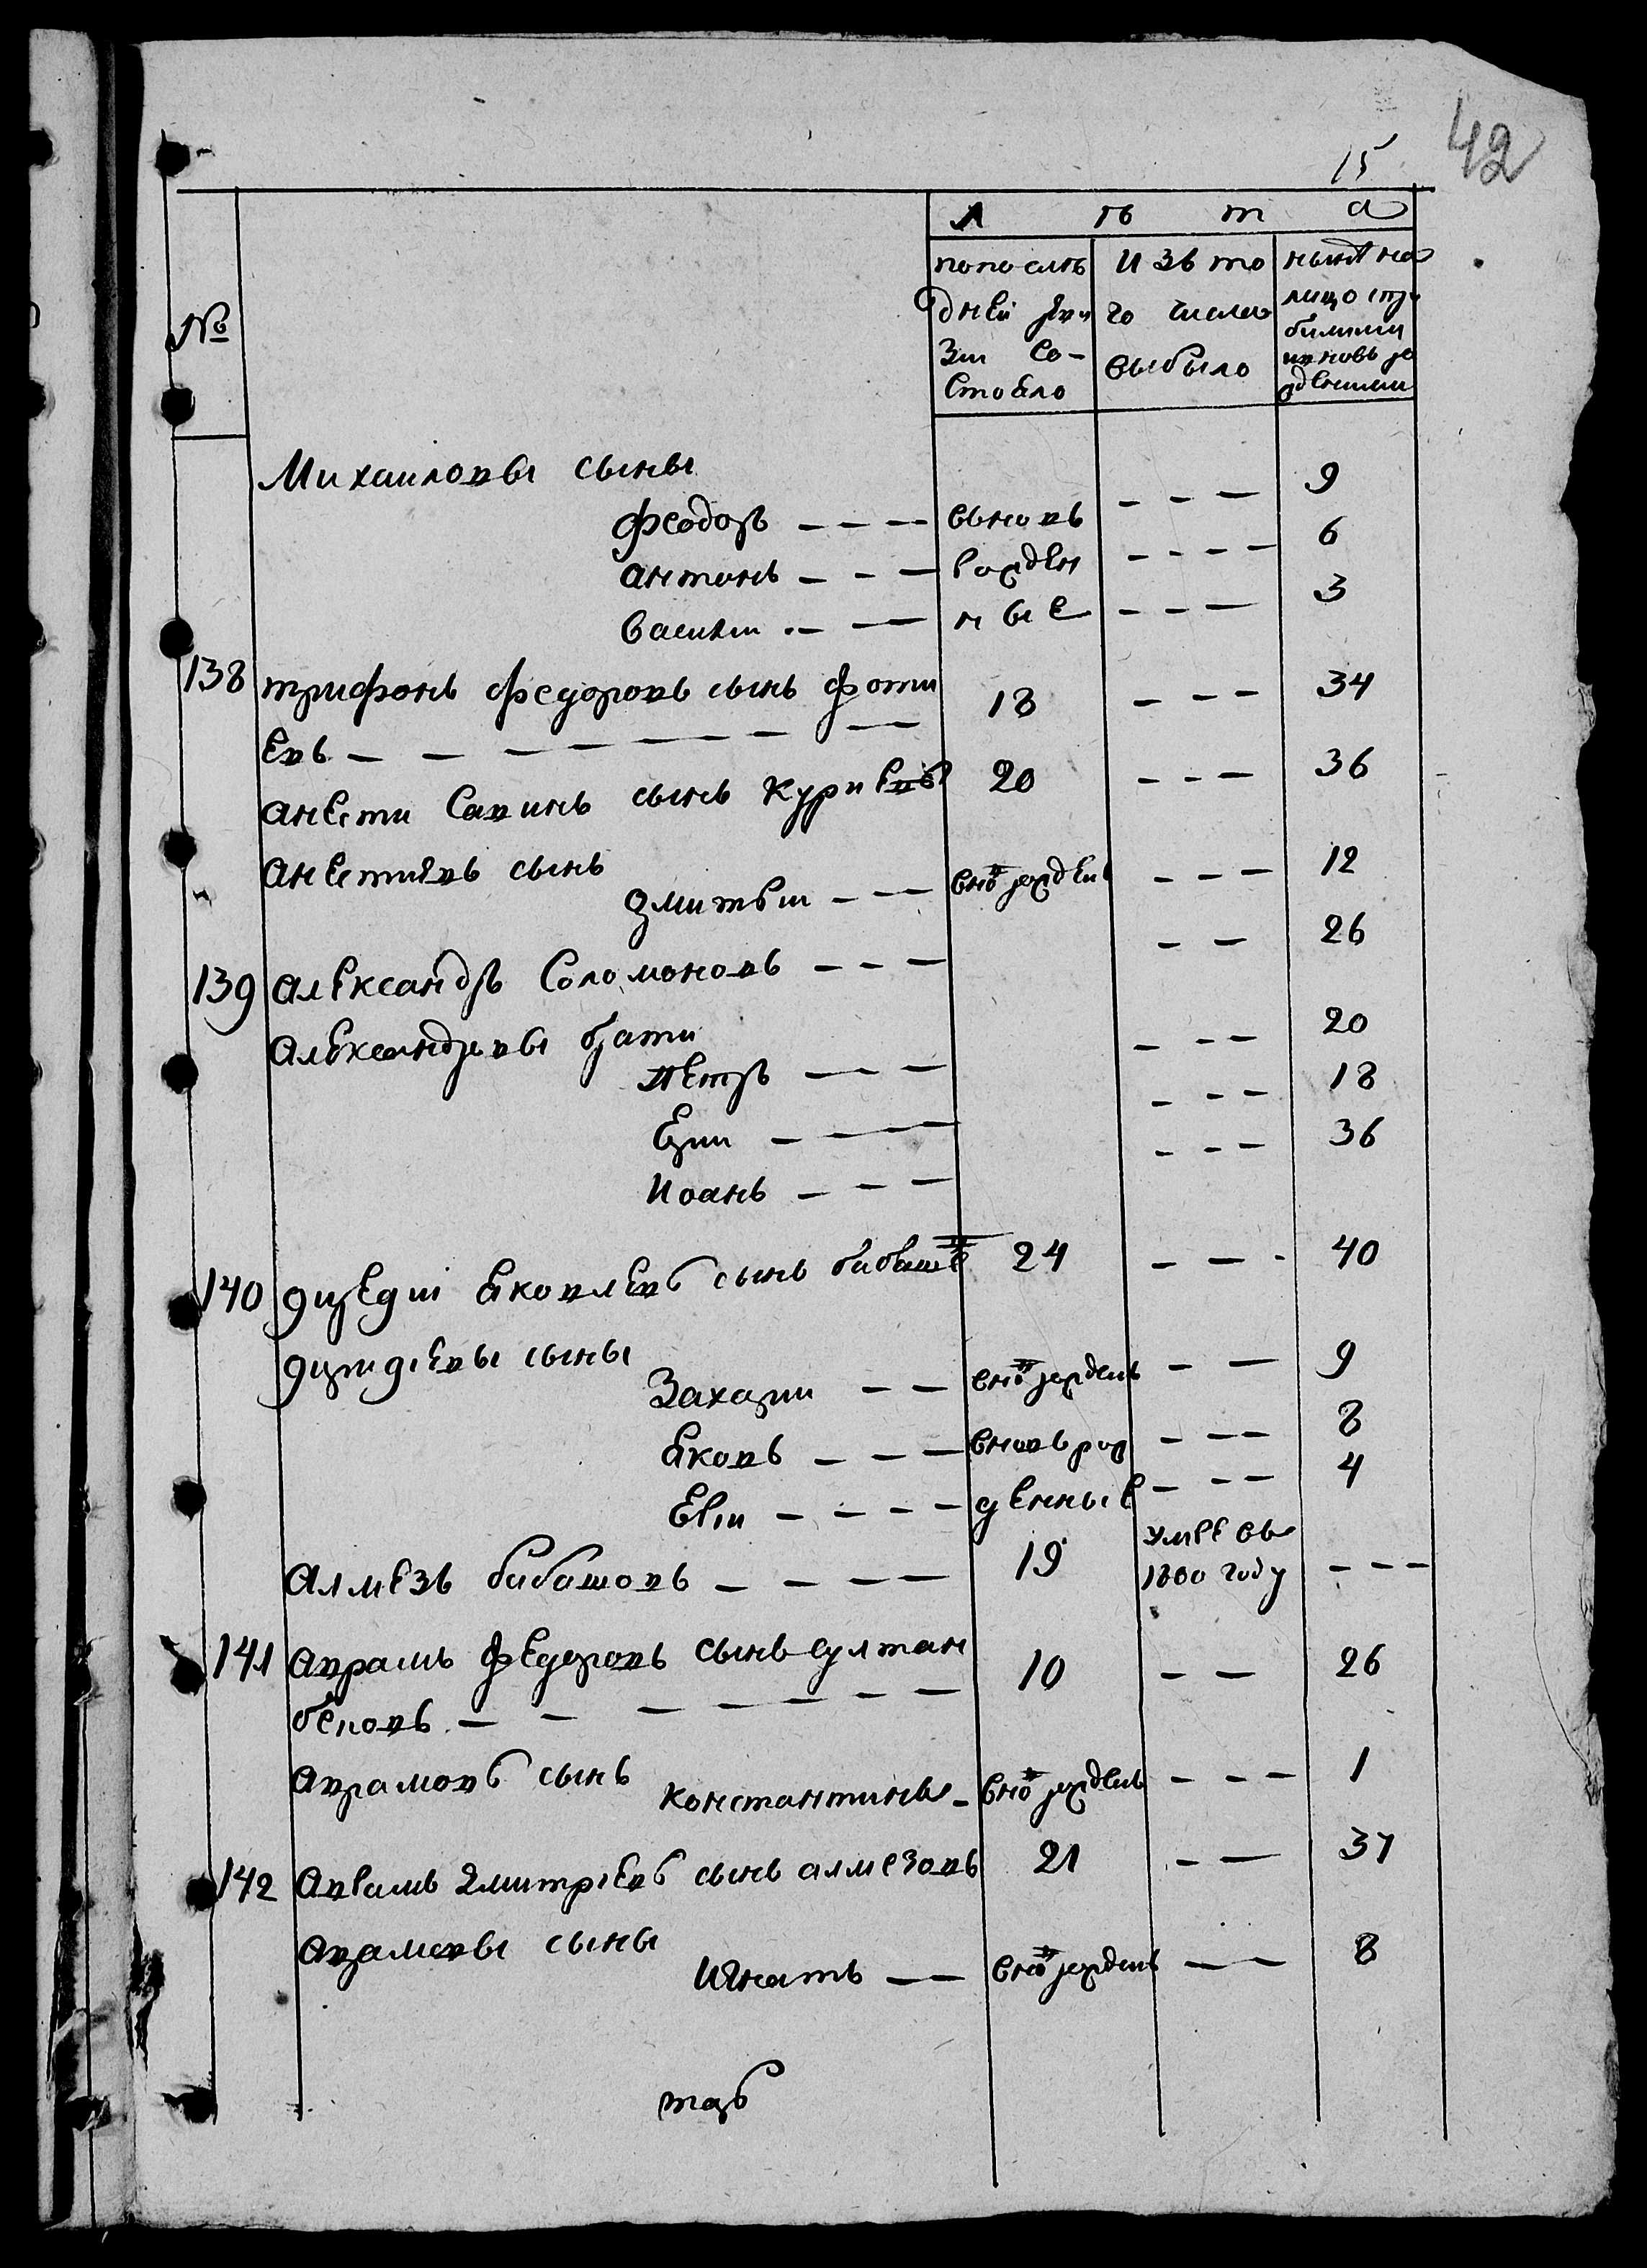 42
15
№
Л ѣ т а
по послѣ
дней реви
зіи со-
стояло
изъ то
го числа
выбыло
нынѣ на
лицо съ при
былыми
и вновь ро
жденными
Михаиловы сыны 9
Феодоръ - - - - вьновь - - - 6
антонъ - - - рожден - - - - 3
василии - - - ные - - -
138 трифонъ федоровъ сынъ фоти 18 - - - 34
евъ - - - - - - - -
анести савинъ сынъ куриевъ 20 - - - 36
анестиевъ сынъ
дмитрии - - - вно рожден - - - 12
139 александръ Соломоновъ - - - - - 26
александровы брати
петръ - - - - - - 20
- - - - - - - 18
иоанъ - - - - - - 36
140 яковлевъ сынъ 24 - - - 40
сыны
Захарии - - вно рожденъ - - 9
яковъ - - - вновь рож - - - 8
- - - - денные - - - 4
алмезъ бабашовъ - - - - 19 умре въ
1800 году - - -
141 аврамъ федоровъ сынъ султан 10 - - 26
бековъ - - - - - - -
аврамовъ сынъ
константинъ - вно рожденъ - - - 1
142 аврамъ дмитріевъ сынъ алмезовъ 21 - - 37
аврамовы сыны
игнатъ - - вно рожденъ - - 8